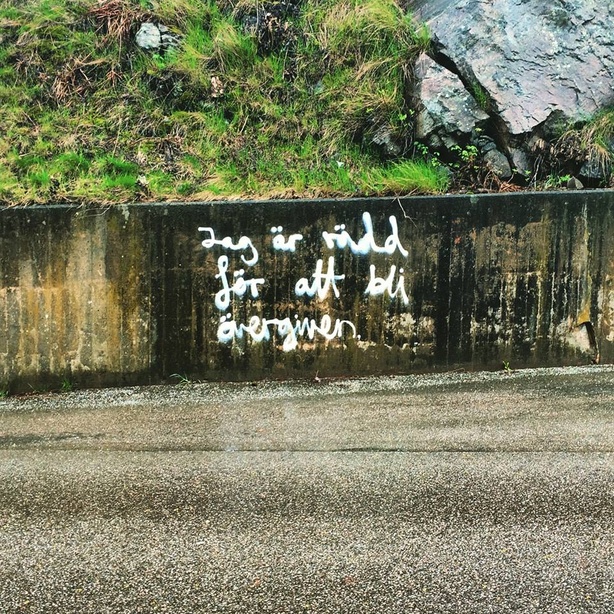 Jag är rädd
för att bli
övergiven